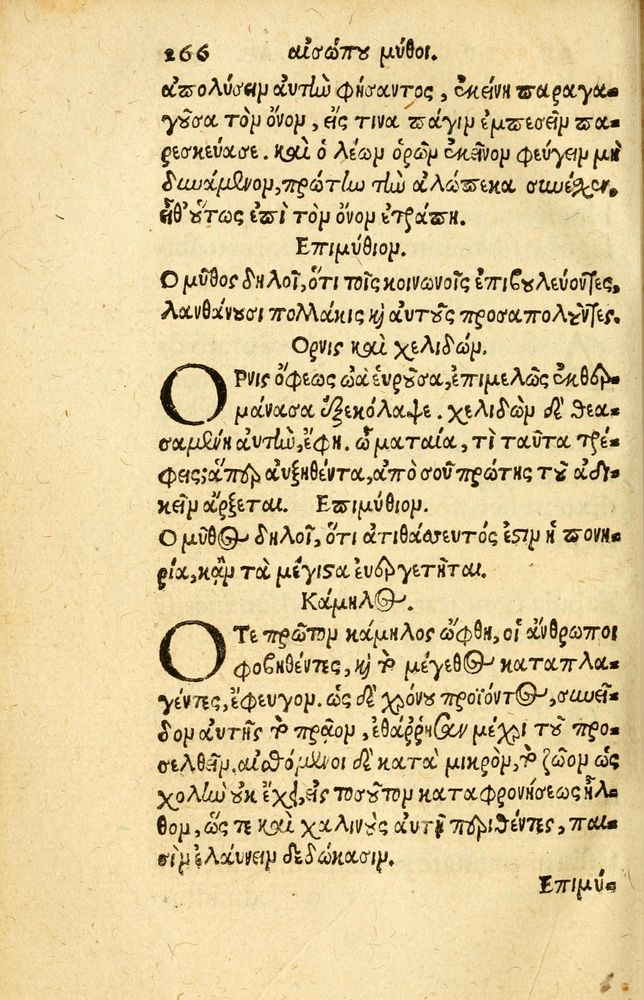 266 αἰσώπου μῦθοι.
ἀπολύσειν αὐτὴν φήσαντος, ἐκείνη παραγα-
γοῦσα τὸν ὄνον, εἴς τινα πάγιν ἐμπεσεῖν πα-
ρεσκεύασε. καὶ ὁ λέων ὁρῶν ἐκεῖνον φεύγειν μὴ
δυνάμενον, πρώτην τὴν ἀλώπεκα συνέχεν,
εἶθ' οὕτως ἐπὶ τὸν ὄνον ἐτράπη.
Ἐπιμύθιον.
Ο μῦθος δηλοῖ, ὅτι τοῖς κοινωνοῖς ἐπιβουλεύοντες,
λανθάνουσι πολλάκις καὶ αὐτοὺς προσαπολῦντες.
Ορνις καὶ χελιδών.
ΟΡνις ὄφεως ὠὰ εὑροῦσα, ἐπιμελῶς ἐκθερ-
μάνασα ἐξεκόλαψε. χελιδὼν δὲ θεα-
σαμένη αὐτὴν, ἔφη. ὦ ματαία, τί ταῦτα τρέ-
φεις; ἅπερ αὐξηθέντα, ἀπὸ σοῦ πρώτης τοῦ ἀδι-
κεῖν ἄρξεται. Ἐπιμύθιον.
Ο μῦθος δηλοῖ, ὅτι ἀτιθάσευτός ἐστιν ἡ πονη-
ρία, κἂν τὰ μέγιστα εὐεργετῆται.
Κάμηλος.
ΟΤε πρῶτον κάμηλος ὤφθη, οἱ ἄνθρωποι
φοβηθέντες, καὶ τὸ μέγεθος καταπλα-
γέντες, ἔφευγον. ὡς δὲ χρόνου προϊόντος, συνεῖ-
δον αὐτῆς τὸ πρᾶον, ἐθάῤῥησαν μέχρι τοῦ προ-
σελθεῖν. αἰσθόμενοι δὲ κατὰ μικρὸν, τὸ ζῶον ὡς
χολὴν οὐκ ἔχει, εἰς τοσοῦτον καταφρονήσεως ἦλ-
θον, ὥς τε καὶ χαλινοὺς αὐτῇ περιθέντες, παι-
σὶν ἐλαύνειν δεδώκασιν.
Ἐπιμύ-